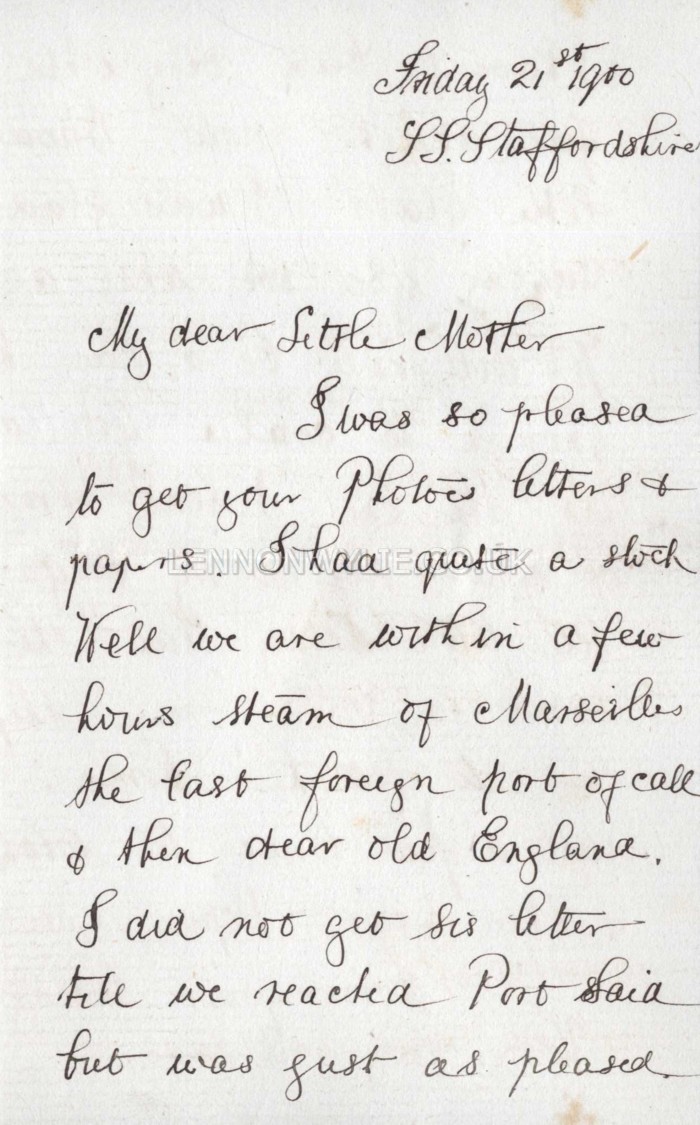 Friday 21st 1900
S.S. Staffordshire
My dear Little Mother
I was so pleased
to get your Photo's letters &
papers. I had quite a stock
Well we are within a few
hours steam of Marseilles
the last foreign port of call
& then dear old England.
I did not get sis letter
till we reached Port Said
but was just as pleased.
LENNONWYLIE.CO.UK